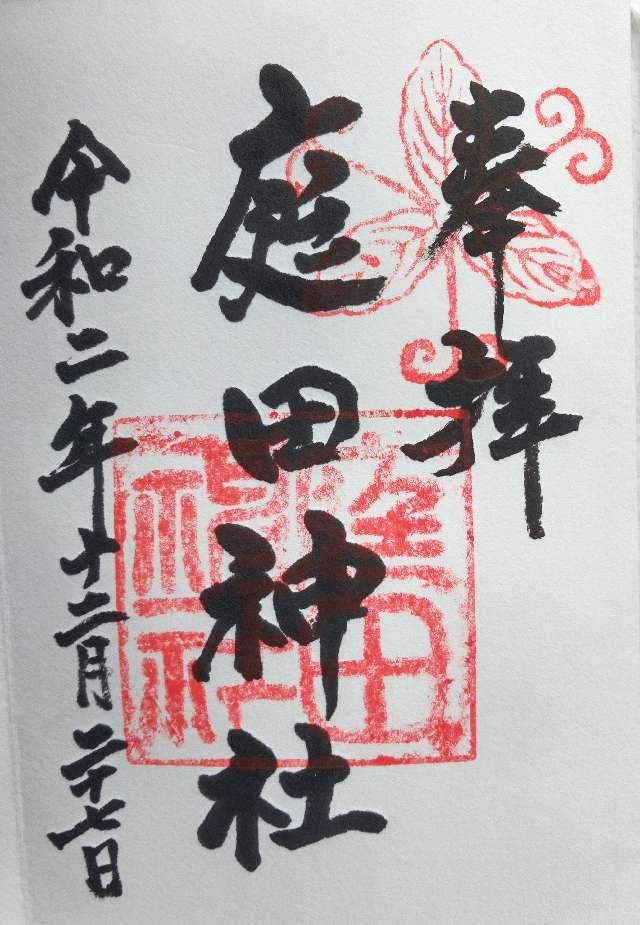 奉拝
庭田神社
令和二年十二月二十七日